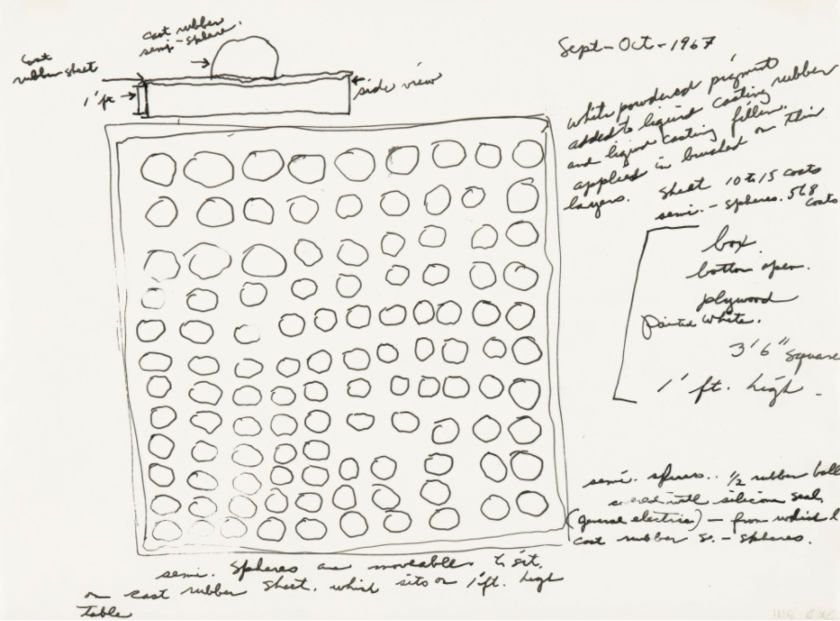 cast rubber
semi-sphere.
cast
rubber sheet
1'ft
side view
Sept-Oct-1967
white powdered pigment
added to liquid casting rubber
and liquid casting filler.
applied in brushed on thin
layers. sheet 10 to 15 coats
semi.-spheres. 5 to 8
coats
box.
bottom open.
plywood
Painted white.
3'6" square
1'ft. high.
semi. spheres.. 1/2 rubber ball
sealed with silicone seal,
(general electric) — from which I
cast rubber s.-spheres.
semi. spheres are moveable. to sit.
on cast rubber sheet. which sits on 1'ft. high
table